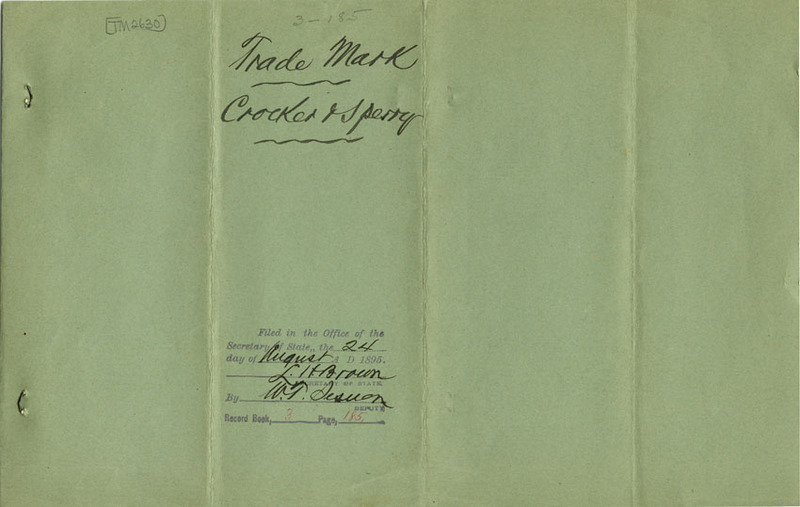 TM2630
3-185
Trade Mark
Crocker & Sperry
Filed in the Office of the
Secretary of State,, the 24
day of August A D 1895.
L. H Brown
SECRETARY OF STATE
By W. T.
DEPUTY
Record Book, 3 Page, 185